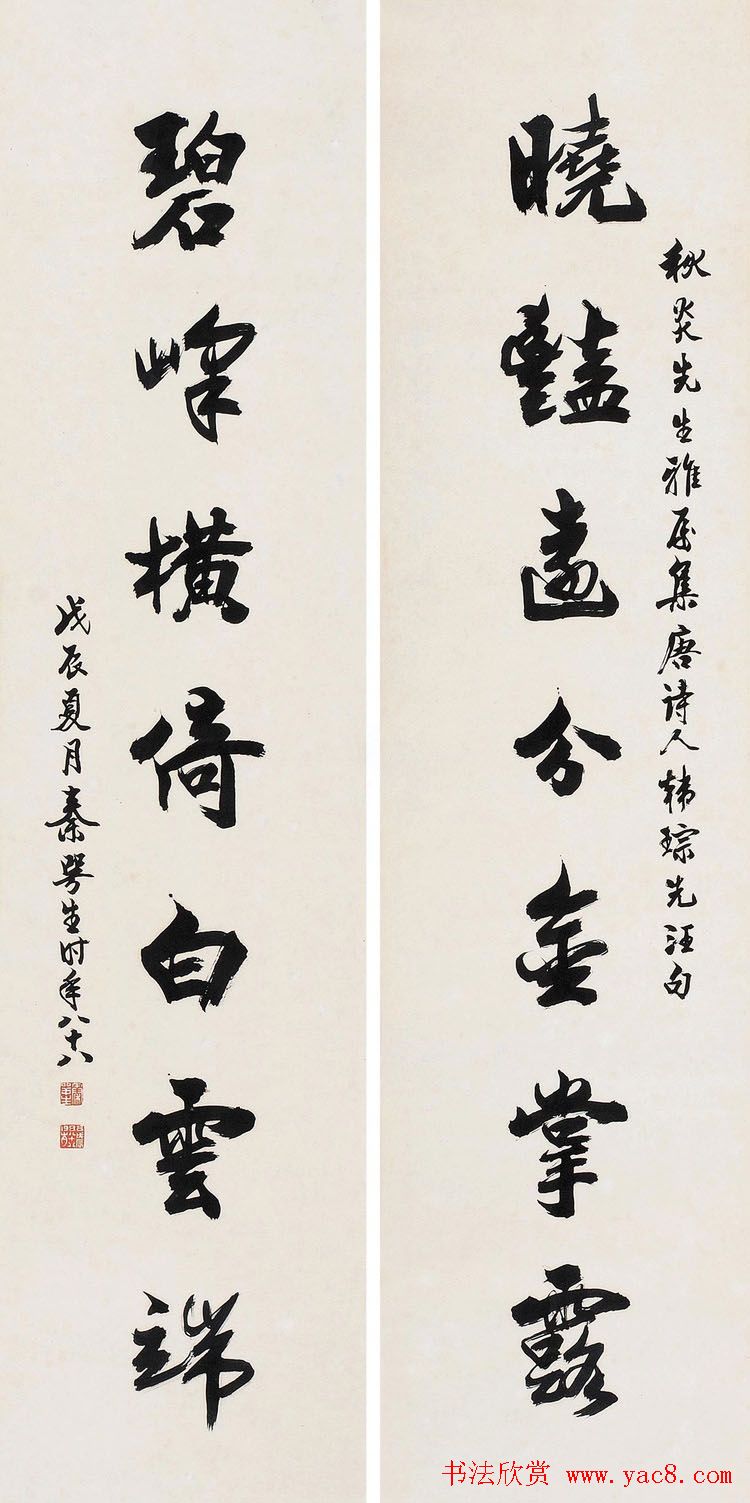 曉豔遠分金掌露
秋炎先生雅属集唐诗人韩琮先汪句
碧峰橫倚白雲端
戊辰夏月秦咢生时年八十八
书法欣赏 www.yac8.com